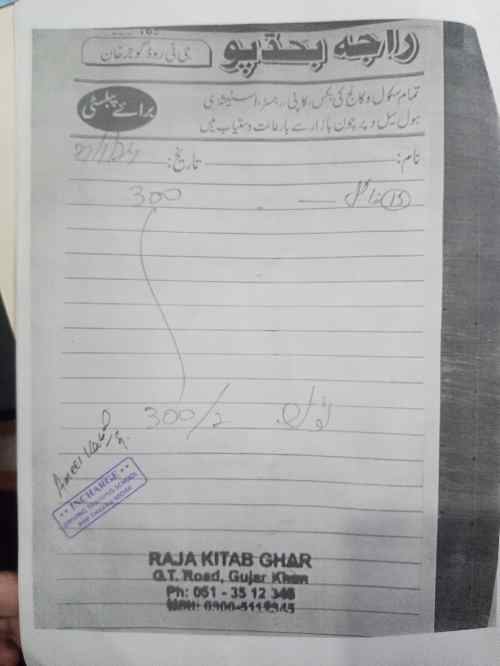 راجہ بکڈپو
جی ٹی روڈ گوجرخان
تمام سکول و کالج کی بکس، کاپی، رجسٹر، اسٹیشنری
ہول سیل و پرچون بازار سے بارعایت دستیاب ہیں
برائے پبلسٹی
نام:
تاریخ:
15
300
300/2
INCHARGE
RAJA KITAB GHAR
G.T. Road, Gujar Khan
Ph: 051 - 35 12 345
Mob: 0300-5112345